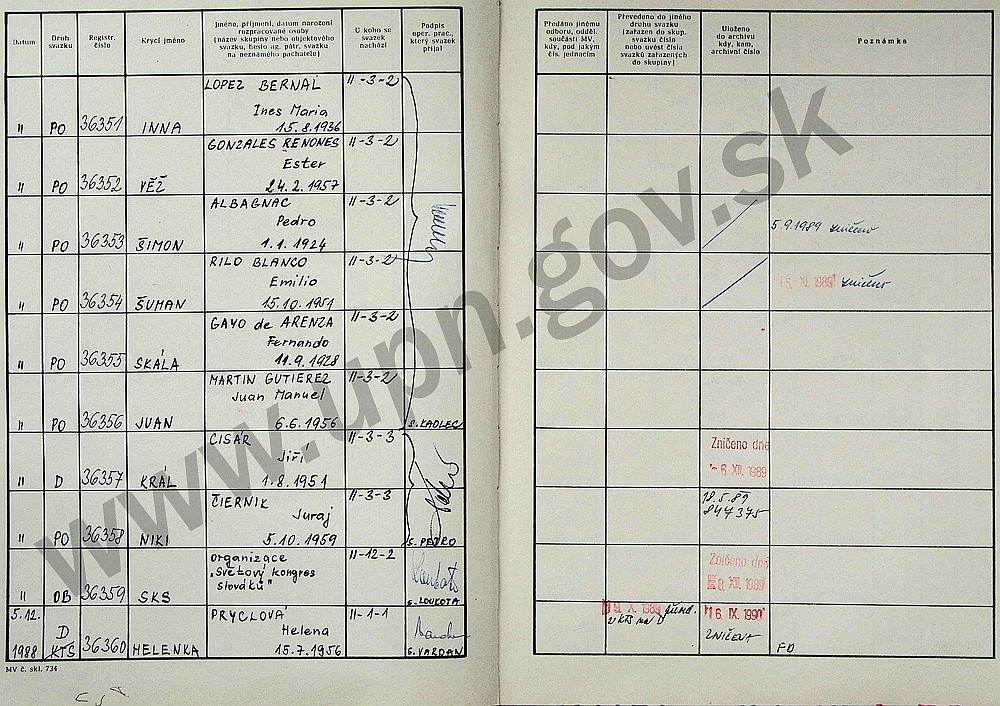 Datum
Druh svazku
Registr. číslo
Krycí jméno
Jméno, příjmení, datum narození
rozpracované osoby
(název skupiny nebo objektového
svazku, heslo ag. pátr. svazku
na neznámého pachatele)
U koho se
svazek
nachází
Podpis
oper. prac.,
který svazek
přijal
Předáno jinému
odboru, odděl.
součásti MV,
kdy, pod jakým
čís. jednacím
Převedeno do jiného
druhu svazku
(zařazen do skup.
svazku číslo
nebo uvést čísla
svazků zařazených
do skupiny)
Uloženo
do archivu
kdy, kam,
archivní číslo
Poznámka
LOPEZ BERNAL II-3-2
Ines Maria
" PO 36351 INNA 15.8.1936
GONZALES RENONES II-3-2
Ester
" PO 36352 VĚŽ 24.2.1957
ALBAGNAC II-3-2
Pedro
" PO 36353 ŠIMON 1.1.1924
5.9.1989 zničeno
RILO BLANCO II-3-2
Emilio
" PO 36354 ŠUMAN 15.10.1951
XI. 1989 zničeno
GAYO de ARENZA II-3-2
Fernando
" PO 36355 SKÁLA 11.9.1928
MARTIN GUTIEREZ II-3-2
Juan Manuel
" PO 36356 JUAN 6.6.1956 S. KADLEC
CISÁR II-3-3
Jiří
" D 36357 KRÁL 1.8.1951
Zničeno dne
- 6. XII. 1989
ČIERNIK II-3-3
Juraj
" PO 36358 NIKI 5.10.1959 S. PETRO
18.5.89
847375
organizace II-12-2
"Světový kongres
slováků"
" OB 36359 SKS S. LOUKOTA
Zničeno dne
8. XII. 1989
5.12. PRYCLOVÁ II-1-1
D Helena
1988 KTS 36360 HELENKA 15.7.1956 S. VARDAN
9. X. 1989
z KTS na D
16. IX. 1990
ZNIČENY
FD
MV č. skl. 734
www.upn.gov.sk